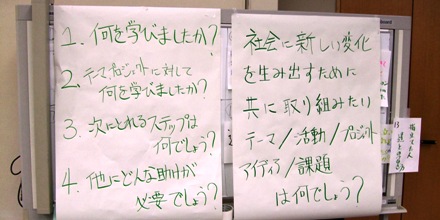 1. 何を学びましたか?
2. テーマプロジェクトに対して
何を学びましたか?
3. 次にとれるステップは
何でしょう?
4. 他にどんな助けが
必要でしょう?
社会に新しい変化
を生み出すために
共に取り組みたい
テーマ/活動/プロジェクト
アイディア/課題
は何でしょう?